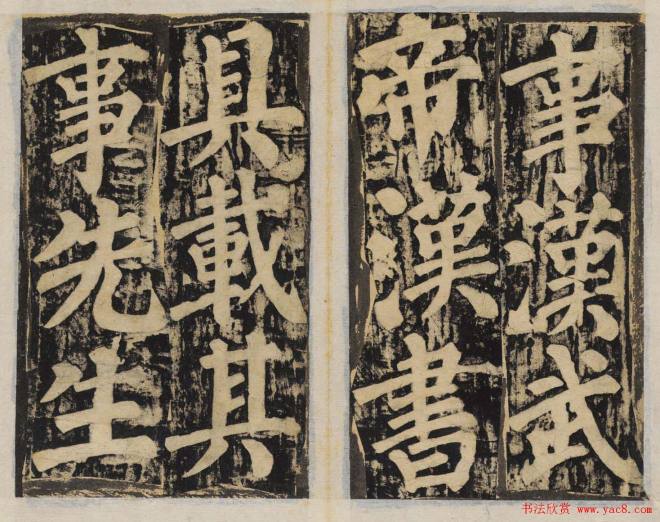 事漢武
帝漢書
具載其
事先生
书法欣赏 www.yac8.com